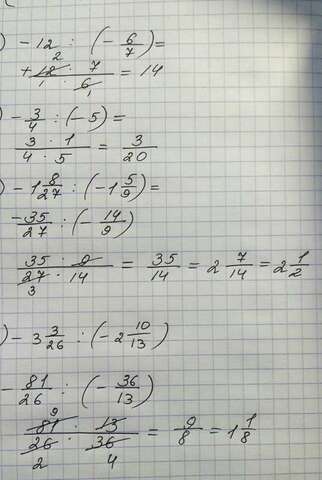 ) - 12 : (- 6/7) =
+ 12 · 7 / 1 · 6 = 14
2
1
) - 3/4 : (- 5) =
3 · 1 / 4 · 5 = 3/20
) - 1 8/27 : (- 1 5/9) =
- 35/27 : (- 14/9)
35 · 9 / 27 · 14 = 35/14 = 2 7/14 = 2 1/2
3
) - 3 3/26 : (- 2 10/13)
- 81/26 : (- 36/13)
9
81 · 13 / 26 · 36 = 9/8 = 1 1/8
2 4